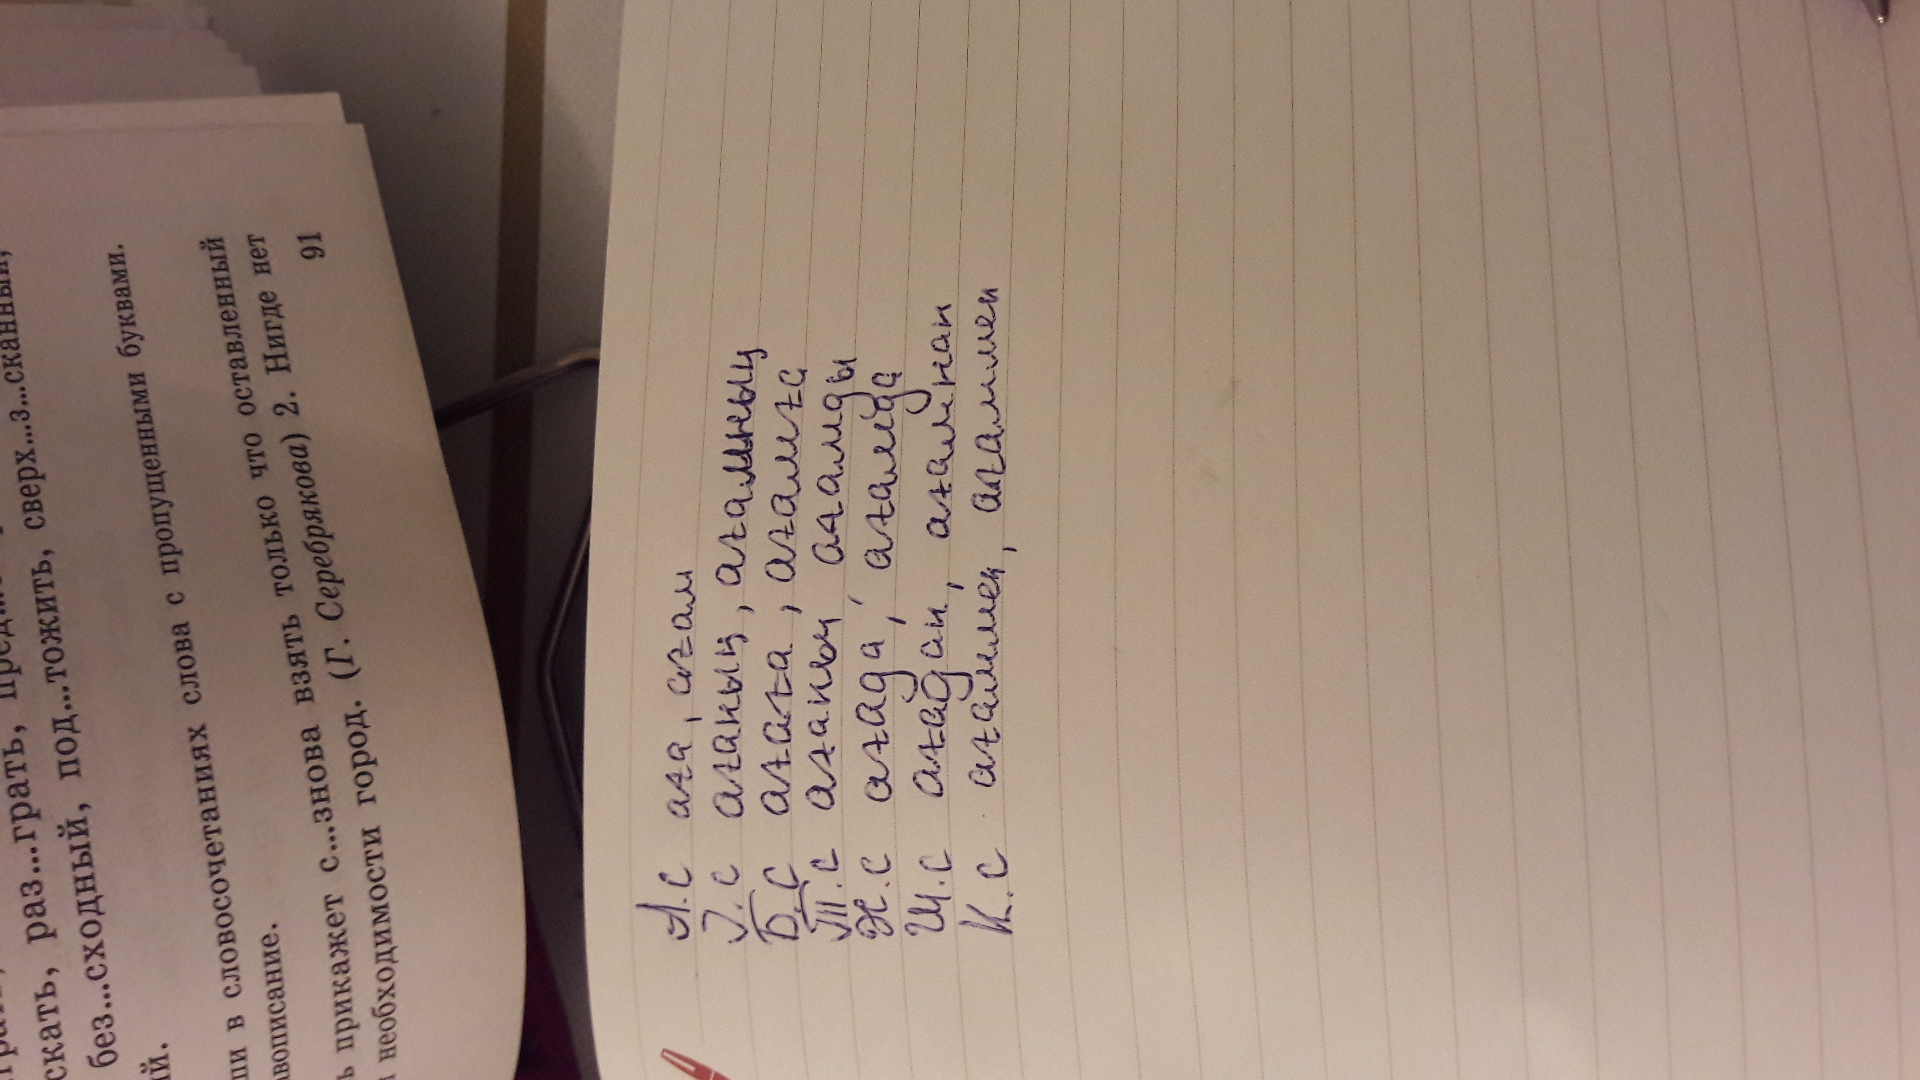 скать, раз...грать, пред...
без...сходный, под...тожить, сверх...з...сканный,
ый.
пи в словосочетаниях слова с пропущенными буквами.
авописание.
ь прикажет с...знова взять только что оставленный
необходимости город. (Г. Серебрякова) 2. Нигде нет
91
А.с аға, ағам
І.с ағаның, ағамның
Б.с ағаға, ағамға
Т.с ағаны, ағамды
Ж.с ағада, ағамда
Ш.с ағадан, ағамнан
К.с ағаммен, ағаммен